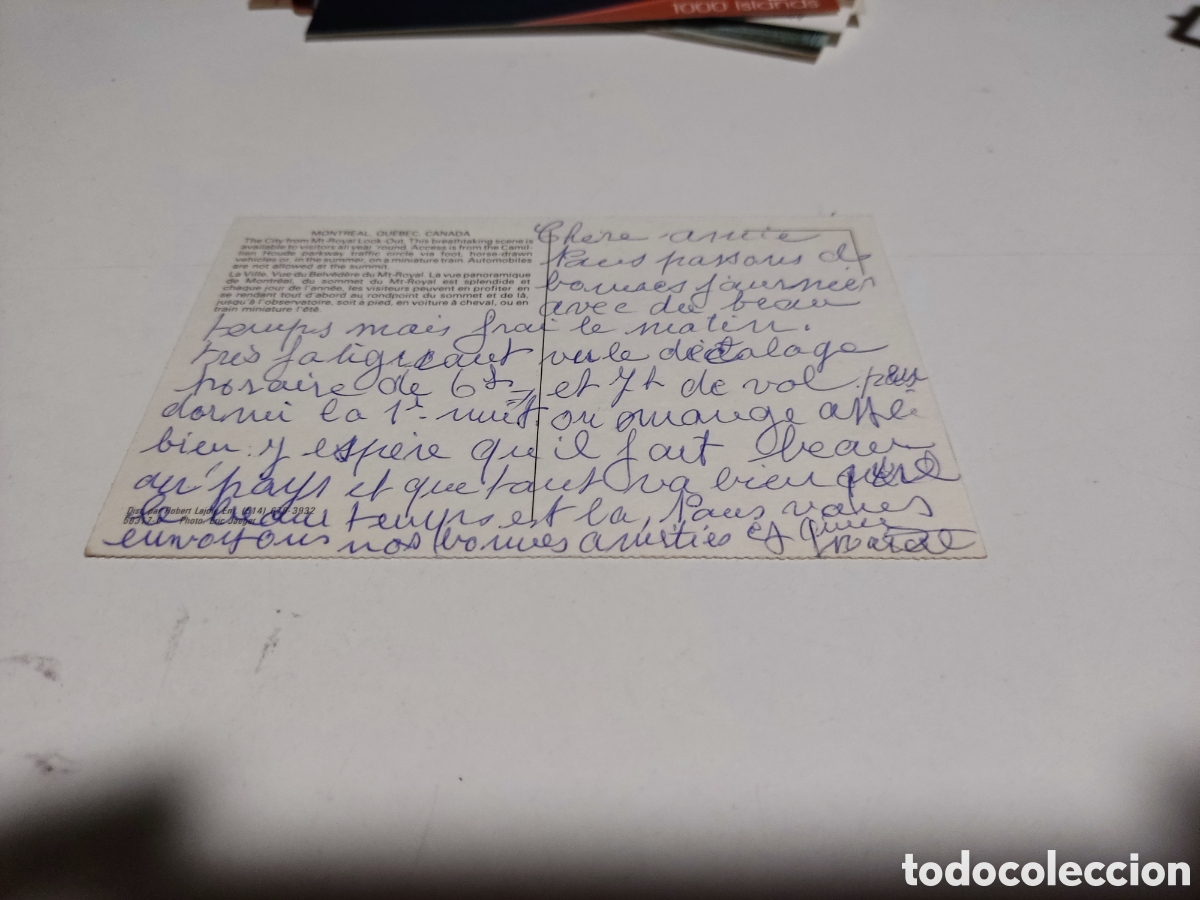 1000 Islands
MONTREAL, QUEBEC, CANADA
The City from Mt-Royal Look-Out. This breathtaking scene is
available to visitors all year 'round. Access is from the Camil-
lien Houde parkway traffic circle via foot, horse-drawn
vehicles or, in the summer, on a miniature train. Automobiles
are not allowed at the summit.
La Ville. Vue du Belvédère du Mt-Royal. La vue panoramique
de Montréal, du sommet du Mt-Royal est splendide et
chaque jour de l'année, les visiteurs peuvent en profiter en
se rendant tout d'abord au rondpoint du sommet et de là,
jusqu'à l'observatoire, soit à pied, en voiture à cheval, ou en
train miniature l'été.
Chère amie
Nous passons de
bonnes journées
avec du beau
temps mais frai le matin.
très fatigant vu le décalage
horaire de 6h et 7h de vol. pas
dormi la 1r nuit. on mange assé
bien. J espère qu'il fait beau
au pays et que tout va bien
le beau temps est la. Nous vous
envoyons nos bonnes amitiés et
Dist. par Robert Lajoie Enr. (514) 3932
Photo: Eric Jaeger
todocoleccion